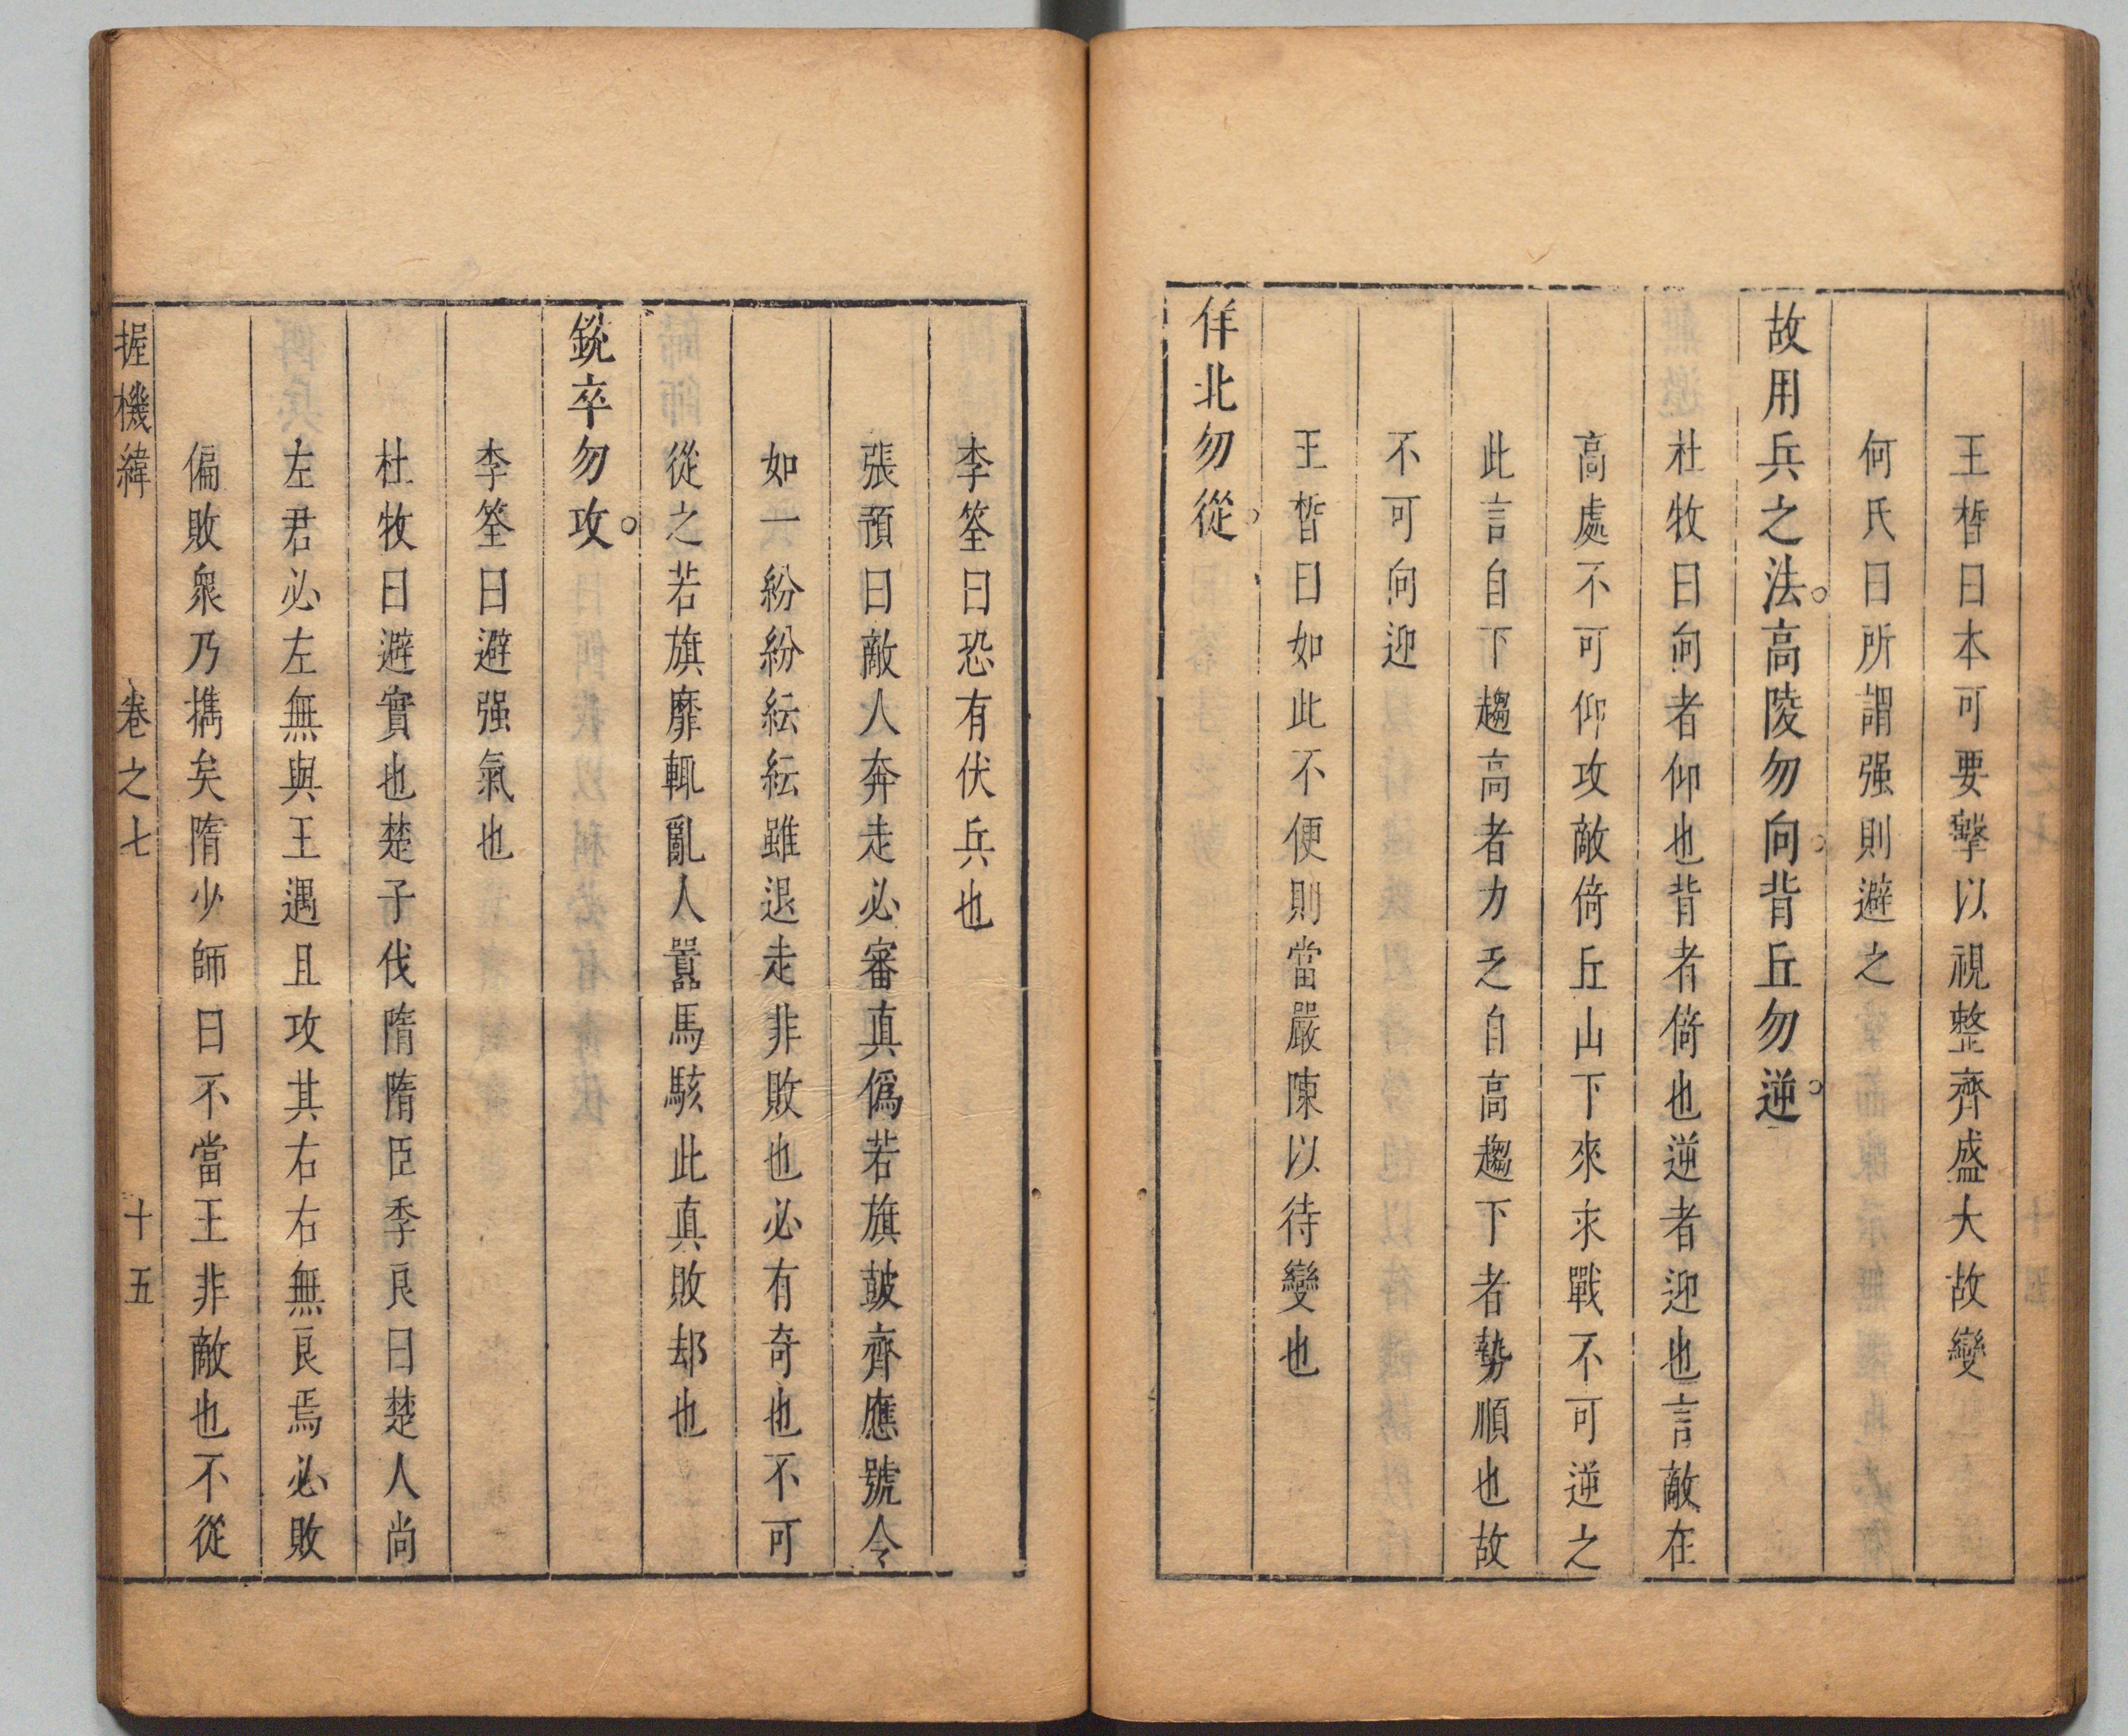 王晳曰本可要擊以視整齊盛大故變
何氏曰所謂强則避之
故用兵之法高陵勿向背丘勿逆
杜牧曰向者仰也背者倚也逆者迎也言敵在
高處不可仰攻敵倚丘山下來求戰不可逆之
此言自下趨高者力乏自高趨下者勢順也故
不可向迎
王晳曰如此不便則當嚴陳以待變也
佯北勿從
李筌曰恐有伏兵也
張預曰敵人奔走必審真僞若旗鼓齊應號令
如一紛紛紜紜雖退走非敗也必有奇也不可
從之若旗靡輒亂人囂馬駭此真敗却也
銳卒勿攻
李筌曰避强氣也
杜牧曰避實也楚子伐隋隋臣季良曰楚人尚
左君必左無與王遇且攻其右右無良焉必敗
偏敗衆乃擕矣隋少師曰不當王非敵也不從
握機緯 卷之七 十五